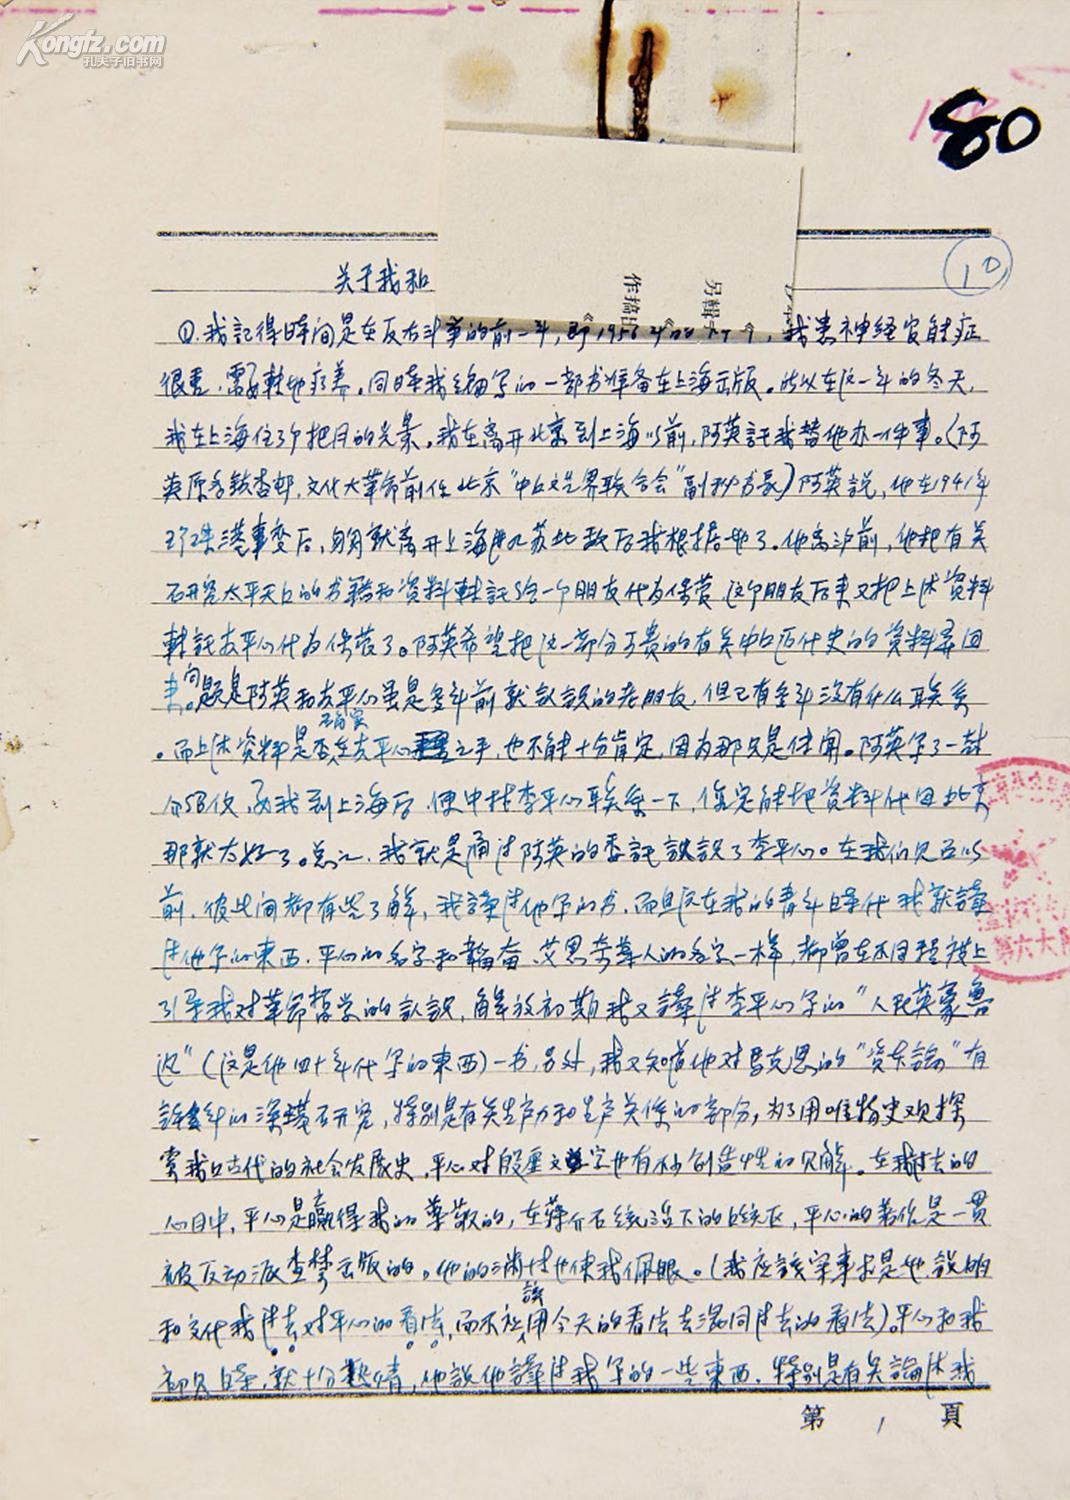 Kongfz.com
孔夫子旧书网
80
10
关于我和
作搞出
另輯
①.我記得時间是在反右斗争的前一年,即1956年 ,我患神经官能症
很重,需要轉地疗养。同時我编写的一部书准备在上海出版。所以在这一年的冬天,
我在上海住了个把月的光景。我在离开北京到上海以前,阿英託我替他办一件事。(阿
英原名钱杏邨,文化大革命前任北京“中国文艺界联合会”副秘书長)阿英説,他在1941年
珍珠港事变后,就离开上海 苏北敌后我根据地了。他离沪前,他把有关
研究太平天国的书籍和资料転託给一个朋友代为保管,这个朋友后来又把上述资料
転託李平心代为保管了。阿英希望把这一部分可贵的有关中国历代史的资料尋回
来。问题是阿英和李平心虽是多年前就認識的老朋友,但已有多年没有什么联系
。而上述资料是否确实在李平心之手,也不能十分肯定,因为那只是传闻。阿英写了一封
介绍信,要我到上海后,便中找李平心联系一下,假定能把资料代回北京
那就太好了。总之,我就是通过阿英的委託認識了李平心。在我们见面以
前,彼此间都有些了解,我讀过他写的书,而且还在我的青年時代我就讀
过他写的東西,平心的名字和韜奋、艾思奇等人的名字一样,都曾在不同程度上
引导我对革命哲学的認識,解放初期我又讀过李平心写的“人民英豪鲁
迅”(这是他四十年代写的東西)一书,另外,我又知道他对马克思的“资本論”有
許多年的深邃研究,特别是有关生产力和生产关系的部分,为了用唯物史观探
索我国古代的社会发展史,平心对殷墟文字也有不少创造性的见解。在我过去的
心目中,平心是赢得我的尊敬的,在蒋介石统治下的国统区,平心的著作是一贯
被反动派查禁出版的。他的 也使我佩服。(我应該实事求是地説明
和交代我过去对平心的看法,而不应該用今天的看法去混同过去的看法)。平心和我
初见時,就十分熱情,他説他讀过我写的一些東西,特别是有关論述我
第六大
第1頁